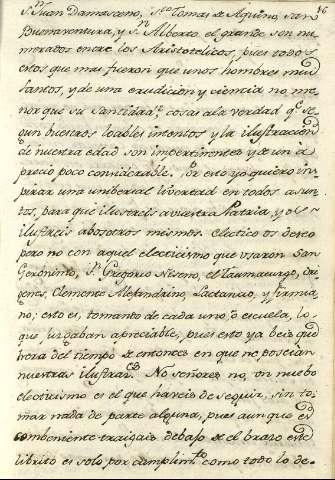 16
Sⁿ Juan Damasceno, Sᵗᵒ Tomas de Aquino, san
Buenaventura, y Sⁿ Alberto el grande son nu-
merados entre los Aristotelicos, pues todos
estos que mas fueron que unos hombres mui
santos, y de una erudicion y ciencia no me
nor qe su santidad? cosas ala verdad qe se
gun buestros loables intentos y la ilustracion
de nuestra edad son impertinentes y de un a
precio poco considerable. Por esto yo quiero ins
pirar una unibersal livertad en todos asun-
tos, para que ilustreis a vuestra Patria, y os
ilustreis abosotros mismos. Eclecticos os deseo
pero no con aquel eclecticismo que usaron San
Geronimo, Sⁿ Gregorio Niseno, el Taumaturgo, Ori
genes, Clemente Alejandrino, Lactancio, y Firmia
no; esto es, tomando de cada uno, o escuela, lo
que juzgaban apreciable, pues esto ya beis que
era del tiempo de entonces en que no poseian
nuestras ilustracᵉˢ. No señores no, un nuebo
eclectismo es el que haveis de seguir, sin to
mar nada de parte alguna, pues aunque es
combeniente traigais debajo de el brazo este
librito es solo por cumplimᵗᵒ como todo lo de-